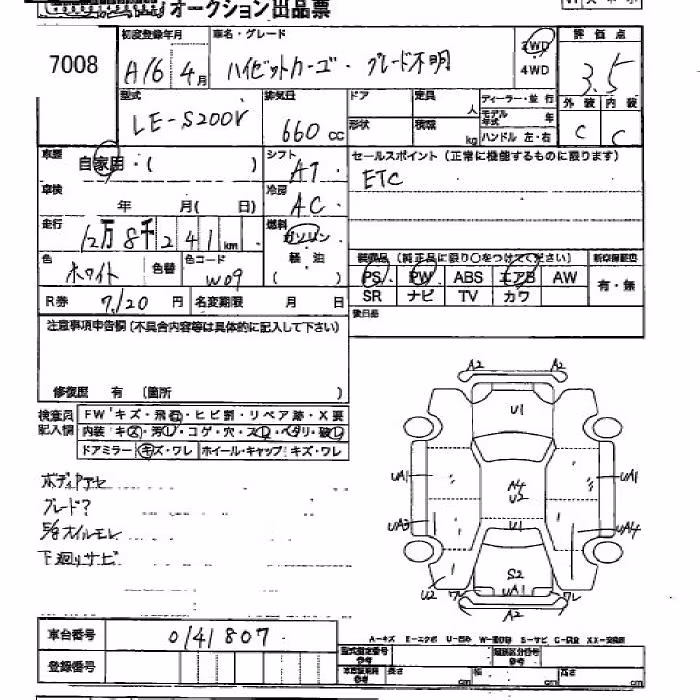 オークション出品票
7008
初度登録年月
H16年4月
車名・グレード
ハイゼットカーゴ・グレード不明
2WD
4WD
評価点
3.5
外装 内装
C C
型式
LE-S200V
排気量
660cc
ドア
形状
定員 人
積載 kg
ディーラー・並行
モデル年式 年
ハンドル 左・右
車歴
自家用・( )
シフト
AT
セールスポイント(正常に機能するものに限ります)
ETC
車検
年 月( 日)
冷房
AC
走行
12万8千241km
燃料
ガソリン
軽油
( )
色
ホワイト
色替
色コード
W09
装備品 (純正品に限り○をつけてください)
新車保証書
PS PW ABS エアB AW
有・無
SR ナビ TV カワ
R券 7,120円
名変期限 月 日
後日品
注意事項申告欄(不具合内容等は具体的に記入して下さい)
修復歴 有 (箇所 )
検査員記入欄
FW キズ・飛石・ヒビ割・リペア跡・X要
内装 キズ・汚レ・コゲ・穴・スレ・ベタリ・破レ
ドアミラー キズ・ワレ ホイール・キャップ キズ・ワレ
ボディアセ
グレード?
E/gオイルモレ
下廻リサビ
A2 A2
U1
UA1 A4 UA1
U2
UA3 U1 UA4
S2
U2 ワレ UA1 ワレ
A2
車台番号
0141807
登録番号
A-キズ E-エクボ U-凹み W-補修跡 S-サビ C-腐食 XX-交換済
型式指定番号
類別区分番号
長さ cm 幅 cm 高さ cm